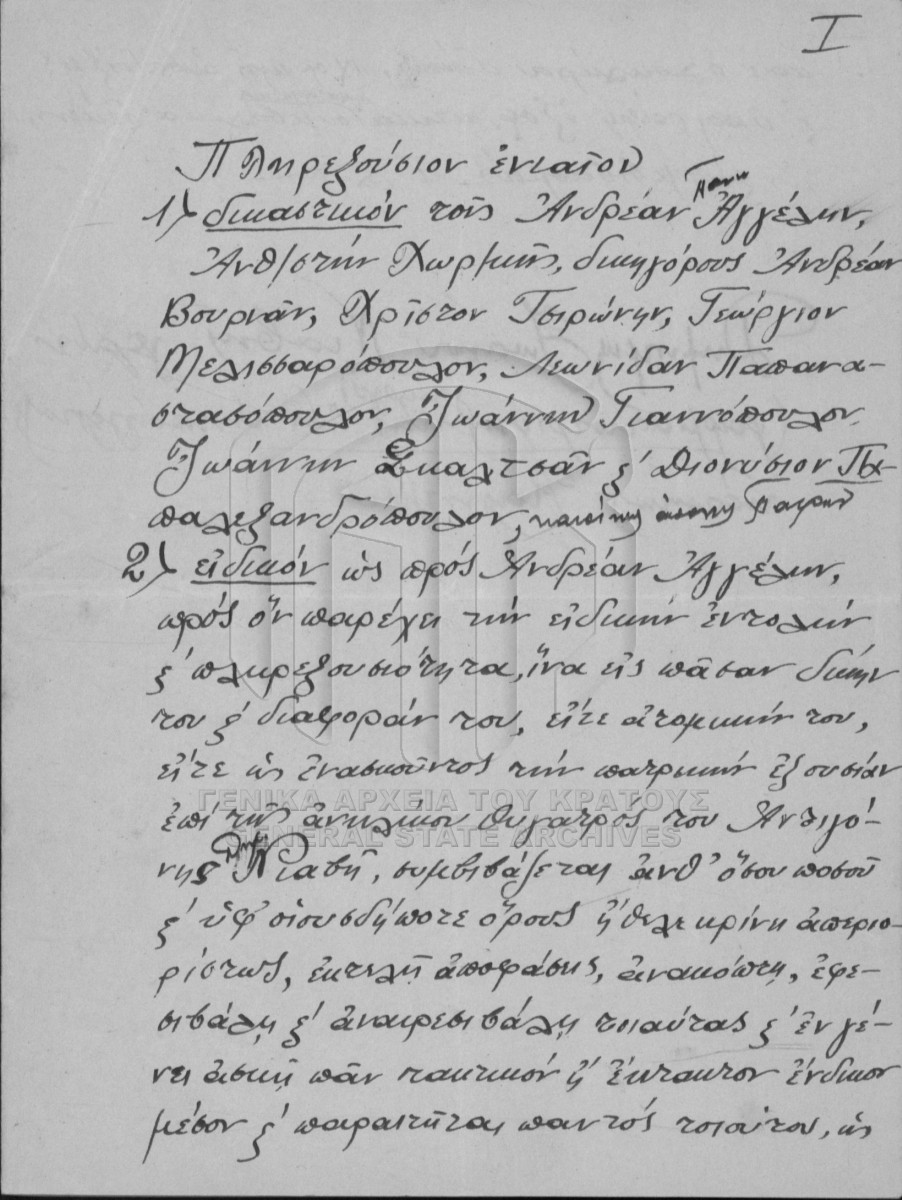 I
Πληρεξούσιον ἑνιαῖον
1) δικαστικόν τούς Ἀνδρέαν Πάνν Ἀγγέλην,
Ἀνθ/στήν Χωρ/κῆς, δικηγόρους Ἀνδρέαν
Βουρνᾶν, Χρῆστον Τσιρώνην, Γεώργιον
Μελισσαρόπουλον, Λεωνίδαν Παπανα-
στασόπουλον, Ἰωάννην Γιαννόπουλον
Ἰωάννην Σκαλτσᾶν ϗ' Διονύσιον Πα-
παλεξανδρόπουλον, Πατρῶν
2) εἰδικόν ὡς πρός Ἀνδρέαν Ἀγγέλην,
πρός ὅν παρέχει τήν εἰδικήν ἐντολήν
ϗ' πληρεξουσιότητα, ἵνα εἰς πᾶσαν δίκην
του ϗ' διαφοράν του, εἴτε ἀτομικήν του,
εἴτε ὡς ἐνασκοῦντος τήν πατρικήν ἐξουσίαν
ἐπί τῆς ἀνηλίκου θυγατρός του Ἀντιγό-
νης Κιαβῆ, συμβιβάζεται ἀνθ' ὅσου ποσοῦ
ϗ' ὑφ' οἱουσδήποτε ὅρους ἤθελε κρίνη ἀπεριο-
ρίστως, ἐκτελῇ ἀποφάσεις, ἀνακόπτῃ, ἐφε-
σιβάλῃ ϗ' ἀναιρεσιβάλῃ τοιαύτας ϗ' ἐν γέ-
νει ἀσκῇ πᾶν τακτικόν ἤ ἔκτακτον ἔνδικον
μέσον ϗ' παραιτῆται παντός τοιούτου, ὡς
ΓΕΝΙΚΑ ΑΡΧΕΙΑ ΤΟΥ ΚΡΑΤΟΥΣ
GENERAL STATE ARCHIVES